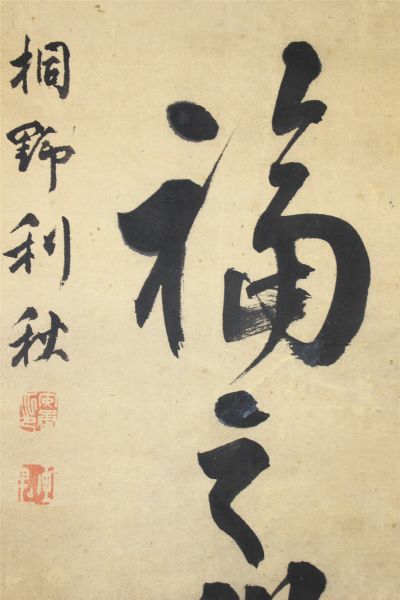 福之
桐野利秋